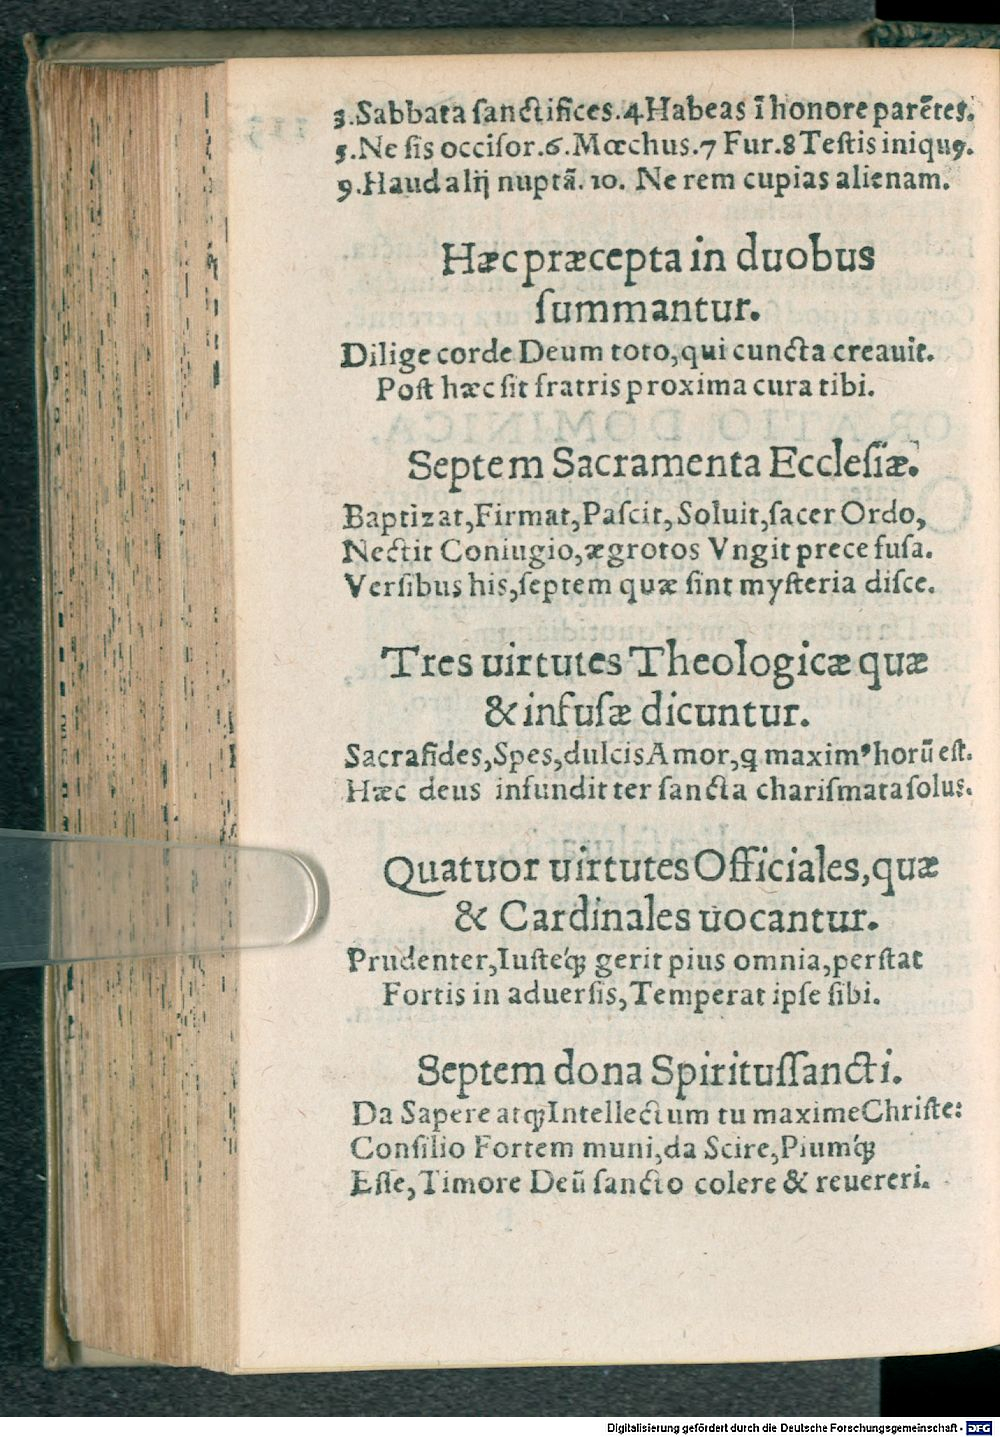 3.Sabbata ſanctifices.4.Habeas ī honore parētes.
5.Ne ſis occiſor.6.Mœchus.7 Fur.8 Teſtis iniquꝰ.
9.Haud alij nuptā.10. Ne rem cupias alienam.
Hæc præcepta in duobus
ſummantur.
Dilige corde Deum toto,qui cuncta creauit.
Poſt hæc ſit fratris proxima cura tibi.
Septem Sacramenta Eccleſiæ.
Baptizat,Firmat,Paſcit,Soluit,ſacer Ordo,
Nectit Coniugio,ægrotos Vngit prece fuſa.
Verſibus his,ſeptem quæ ſint myſteria diſce.
Tres uirtutes Theologicæ quæ
& infuſæ dicuntur.
Sacra fides,Spes,dulcis Amor,q maximꝰ horū eſt.
Hæc deus infundit ter ſancta chariſmata ſolus.
Quatuor uirtutes Officiales,quæ
& Cardinales uocantur.
Prudenter,Iuſteq́ꝫ gerit pius omnia,perſtat
Fortis in aduerſis,Temperat ipſe ſibi.
Septem dona Spirituſſancti.
Da Sapere atqꝫ Intellectum tu maxime Chriſte:
Conſilio Fortem muni,da Scire,Piumq́ꝫ
Eſſe,Timore Deū ſancto colere & reuereri.
Digitalisierung gefördert durch die Deutsche Forschungsgemeinschaft - DFG